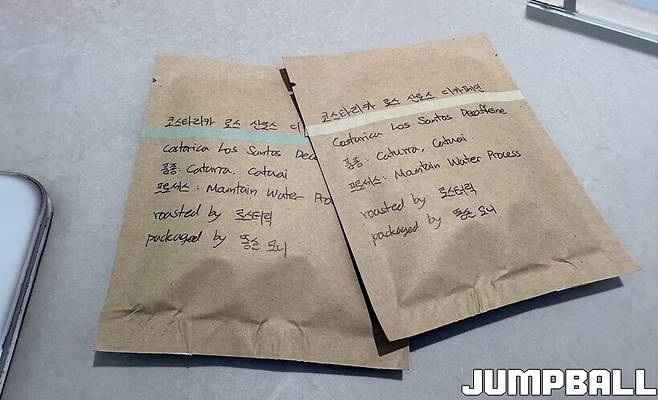 코스타리카 로스 산토스 디
Costarica Los Santos Deca
품종: Caturra, Catuai
프로세스: Mauntain Water Pro
roasted by 로스터릭
packaged by
코스타리카 로스 산토스 디카페인
Costarica Los Santos Decaffeine
품종: Caturra, Catuai
프로세스: Mauntain Water Process
roasted by 로스터릭
packaged by
JUMPBALL